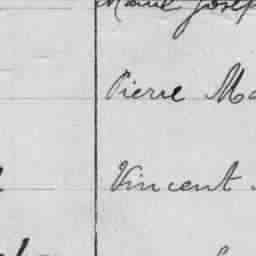 Marie Josep
Pierre Ma
Vincent